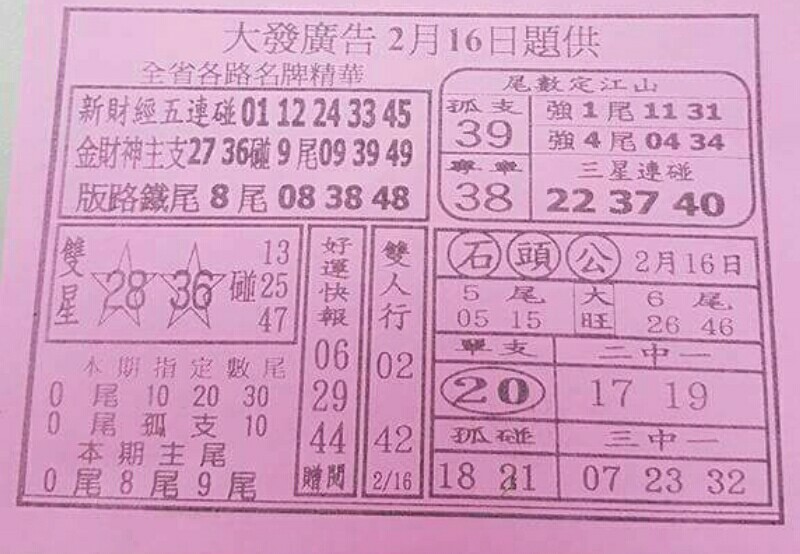 大發廣告2月16日題供
全省各路名牌精華
新財經五連碰01 12 24 33 45
金財神主支27 36碰9尾09 39 49
版路鐵尾8尾08 38 48
尾數定江山
孤支
39
強1尾11 31
強4尾04 34
專車
38
三星連碰
22 37 40
雙星
28 36
碰
13
25
47
本期指定數尾
0尾10 20 30
0尾孤支10
本期主尾
0尾8尾9尾
好運快報
06
29
44
贈閱
雙人行
02
42
2/16
石頭公2月16日
5尾
05 15
大旺
6尾
26 46
單支
20
二中一
17 19
孤碰
18 21
三中一
07 23 32